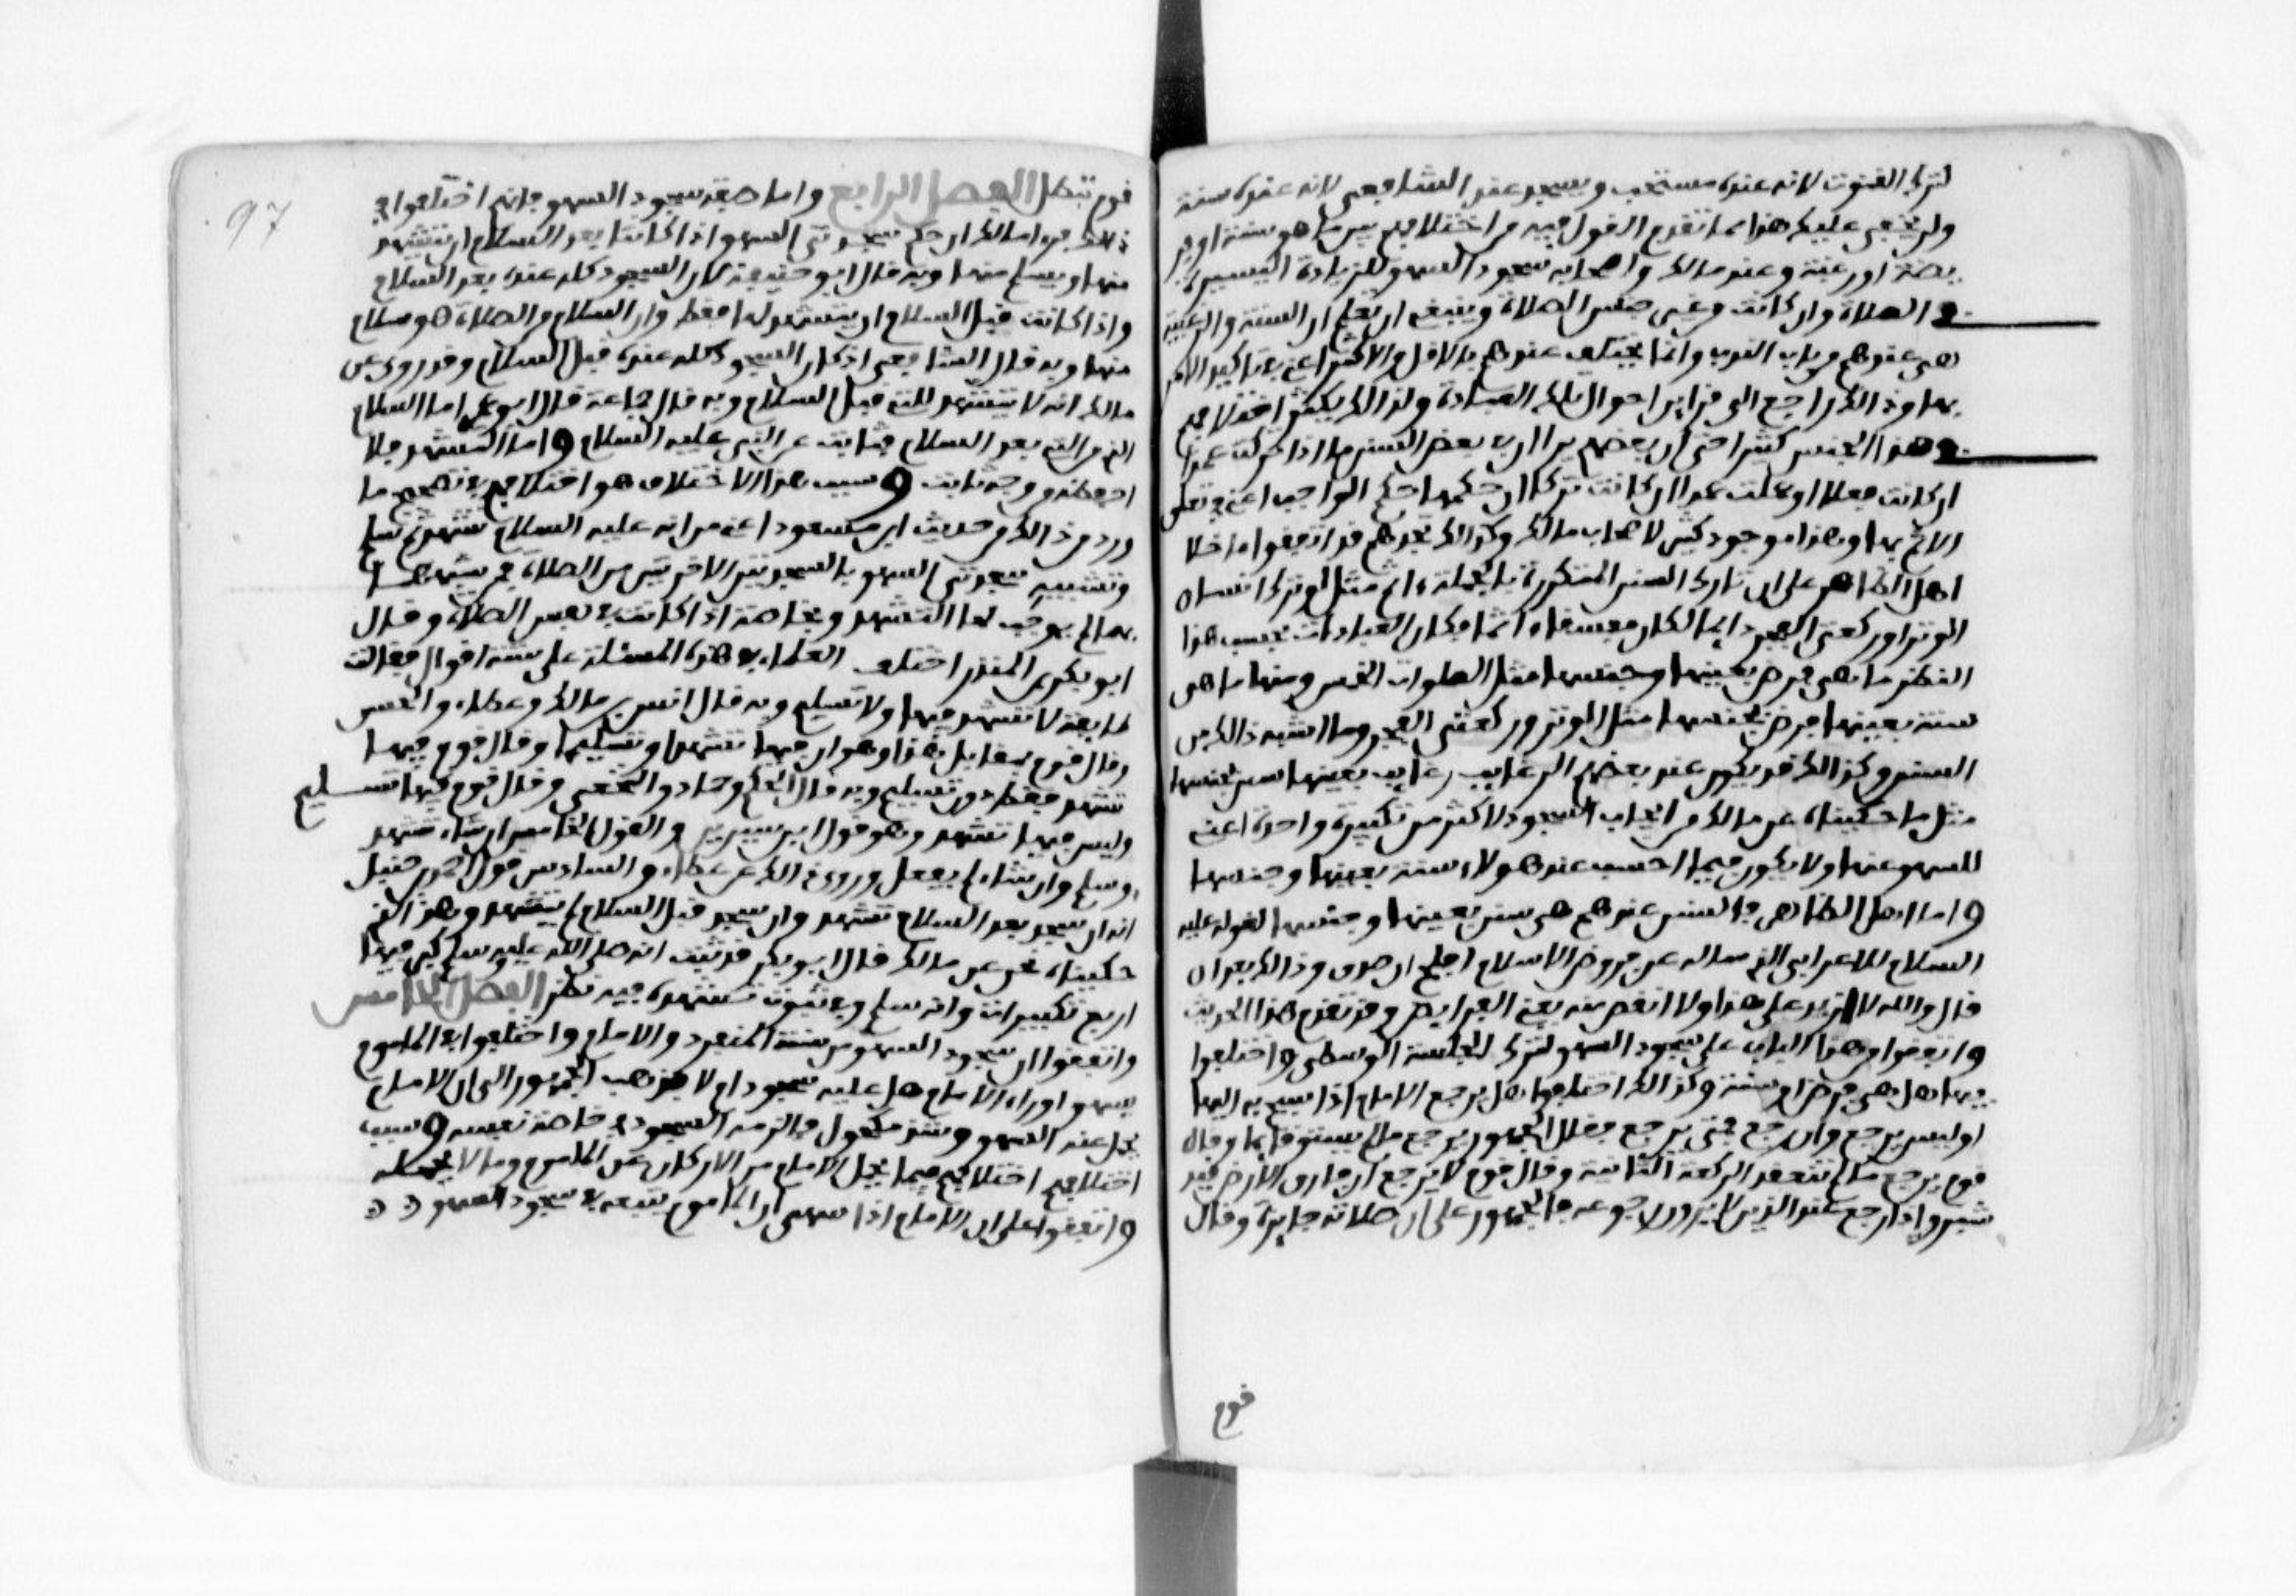 لترك القنوت لانه عنده مستحب ويسجد عند الشافعي لانه عنده سنة
وليس يخفى عليك هذا مما تقدم القول فيه من اختلافهم بين ما هو سنة او فر
يضة او رغيبة وعند مالك واصحابه سجود السهو للزيادة اليسيرة
في الصلاة وان كانت من غير جنس الصلاة وينبغي ان تعلم ان السنة والرغيبة
هي عندهم من باب الندب وانما يختلف عندهم بالاقل والاكثر اعني في تاكيد الامر
بها وذالك راجع الى قراين احوال تلك العبادة ولذالك يكثر اختلافهم
في هذا الجنس كثيرا حتى ان بعضهم يرا ان في بعض السنن ما اذا تركت عمدا
ان كانت فعلا او عملت عمدا ان كانت تركا ان حكمها حكم الواجب اعني في تعلق
الاثم بها وهذا موجود كثير لاصحاب مالك وكذالك تجدهم قد اتفقوا ما خلا
اهل الظاهر على ان تارك السنن المتكررة بالجملة ءاثم مثل لو ترك انسان
الوتر او ركعتي الفجر دايما لكان مفسقا ءاثما فكان العبادات بحسب هذا
النظر ما هي فرض بعينها وجنسها مثل الصلوات الخمس ومنها ما هي
سنة بعينها فرض بجنسها مثل الوتر وركعتي الفجر وما اشبه ذالك من
السنن وكذالك قد يكون عند بعضهم الرغايب رغايب بعينها سنن بجنسها
مثل ما حكيناه عن مالك من ايجاب السجود لاكثر من تكبيرة واحدة اعني
للسهو عنها ولا يكون فيما احسب عند هولاء سنة بعينها وجنسها
واما اهل الظاهر فالسنن عندهم هي سنن بعينها وجنسها لقوله عليه
السلام للاعرابي الذي ساله عن فروض الاسلام افلح ان صدق وذالك بعد ان
قال والله لا ازيد على هذا ولا انقص منه يعني الفرايض وقد تقدم هذا الحديث
واتفقوا من هذا الباب على سجود السهو لترك الجلسة الوسطى واختلفوا
فيها هل هي فرض ام سنة وكذالك اختلفوا هل يرجع الامام اذا سبح به اليها
او ليس يرجع وان رجع فمتى يرجع فقال الجمهور يرجع ما لم يستو قايما وقال
قوم يرجع ما لم تنعقد الركعة الثانية وقال قوم لا يرجع ان فارق الارض قيد
شبر واذا رجع عند الذين لا يرون رجوعه فالجمهور على ان صلاته جايزة وقال
قوم
97
قوم تبطل الفصل الرابع واما صفة سجود السهو فانهم اختلفوا في
ذلك فراءا مالك ان حكم سجدتي السهو اذا كانتا بعد السلام ان يتشهد
منها ويسلم منها وبه قال ابو حنيفة لان السجود كله عنده بعد السلام
واذا كانت قبل السلام ان يتشهد لها فقط وان السلام من الصلاة هو سلام
منها وبه قال الشافعي اذ كان السجود كله عنده قبل السلام وقد روي عن
مالك انه لا يتشهد للتي قبل السلام وبه قال جماعة قال ابو عمر اما السلام
الذي من التي بعد السلام فثابت عن النبي عليه السلام واما التشهد فلا
احفظه من وجه ثابت وسبب هذا الاختلاف هو اختلافهم في تصحيح ما
ورد من ذالك من حديث ابن مسعود اعني من انه عليه السلام تشهد ثم سلم
وتشبيه سجدتي السهو بالسجدتين الاخيرتين من الصلاة فمن شبهها
بها لم يوجب لها التشهد وبخاصة اذا كانت في نفس الصلاة وقال
ابو بكر بن المنذر اختلف العلماء في هذه المسئلة على ستة اقوال فقالت
طايفة لا تشهد فيها ولا تسليم وبه قال انس بن مالك وعطاء والحسن
وقال قوم بمقابل هذا وهو ان فيها تشهدا وتسليما وقال قوم فيها
تشهد فقط دون تسليم وبه قال الحكم وحماد والنخعي وقال قوم فيها تسليم
وليس فيها تشهد وهو قول ابن سيرين والقول الخامس ان شاء تشهد
وسلم وان شاء لم يفعل وروي ذالك عن عطاء والسادس قول احمد بن حنبل
انه ان سجد بعد السلام تشهد وان سجد قبل السلام لم يتشهد وهو الذي
حكيناه نحن عن مالك قال ابو بكر قد ثبت انه صلى الله عليه وسلم كبر فيها
اربع تكبيرات وانه سلم وفي ثبوت تشهده فيه نظر الفصل الخامس
واتفقوا ان سجود السهو من سنة المنفرد والامام واختلفوا في الماموم
يسهوا وراء الامام هل عليه سجود ام لا فذهب الجمهور الى ان الامام
يحمل عنه السهو وشذ مكحول فالزمه السجود في خاصة نفسه وسبب
اختلافهم اختلافهم فيما يحمل الامام من الاركان عن الماموم وما لا يحمله
واتفقوا على ان الامام اذا سهى ان الماموم يتبعه في سجود السهو